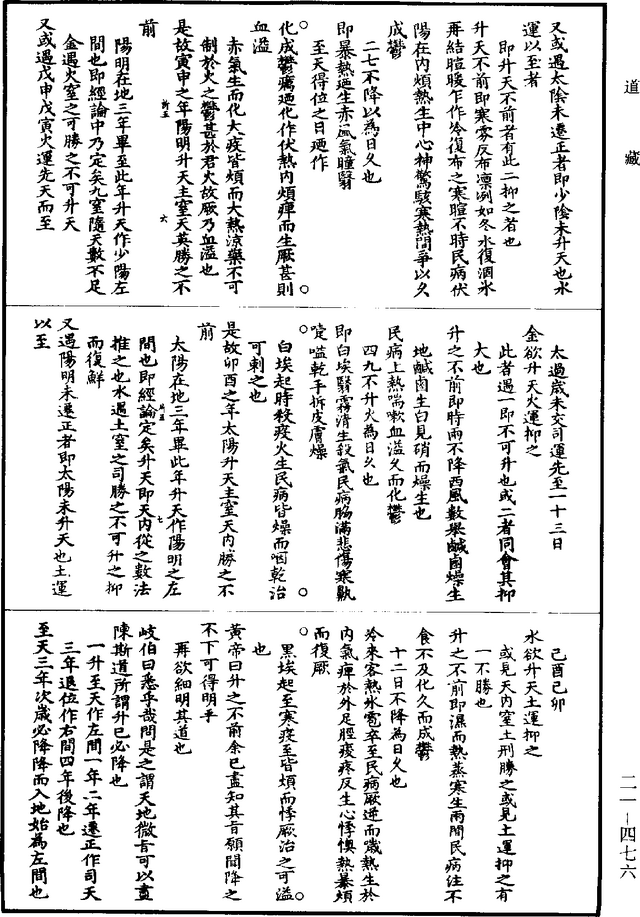 道藏
又或遇太陰未遷正者即少陰未升天也水
運以至者
即升天不前者有此二抑之者也
升天不前即寒雰反布凛冽如冬水復涸冰
再結暄暖乍作冷復布之寒暄不時民病伏
陽在内煩熱生中心神驚駭寒熱間爭以久
成鬱
二七不降以為日久也
即暴熱迺生赤風氣瞳翳
至天得位之日迺作
化成鬱癘迺化作伏熱内煩痹而生厥甚則
血溢
赤氣生而化大疫皆煩而大熱涼藥不可
制於火之鬱甚於君火故厥乃血溢也
是故寅申之年陽明升天主窒天英勝之不
前
陽明在地三年畢至此年升天作少陽左
間也即經論中乃定矣九窒隨天數不足
金遇火窒之可勝之不可升天
又或遇戊申戊寅火運先天而至
太過歲未交司運先至一十三日
金欲升天火運抑之
此者遇一即不可升也或二者同會其抑
大也
升之不前即時雨不降西風數舉鹹鹵燥生
地鹹鹵生白見硝而燥生也
民病上熱喘嗽血溢久而化鬱
四九不升火為日久也
即白埃翳霧清生殺氣民病脇滿悲傷寒鼽
嚏嗌乾手拆皮膚燥
白埃起時殺疫火生民病皆燥而咽乾治
可刺之也
是故卯酉之年太陽升天主窒天内勝之不
前
太陽在地三年畢此年升天作陽明之左
間也即經論定矣升天即天内從之數法
推之也水遇土窒之司勝之不可升之抑
而復鮮
又遇陽明未遷正者即太陽未升天也土運
以至
己酉己卯
水欲升天土運抑之
或見天内窒土刑勝之或見土運抑之有
一不勝也
升之不前即濕而熱蒸寒生兩間民病注不
食不及化久而成鬱
十二日不降為日久也
冷來客熱冰雹卒至民病厥逆而噦熱生於
内氣痹於外足脛痠疼反生心悸懊熱暴煩
而復厥
黑埃起至寒疫至皆煩而悸厥治之可溢
也
黄帝曰升之不前余已盡知其旨願聞降之
不下可得明乎
再欲細明其道也
岐伯曰悉乎哉問是之謂天地微旨可以盡
陳斯道所謂升已必降也
一升至天作左間一年二年遷正作司天
三年退位作右間四年後降也
至天三年次歲必降降而入地始為左間也
二一－四七六